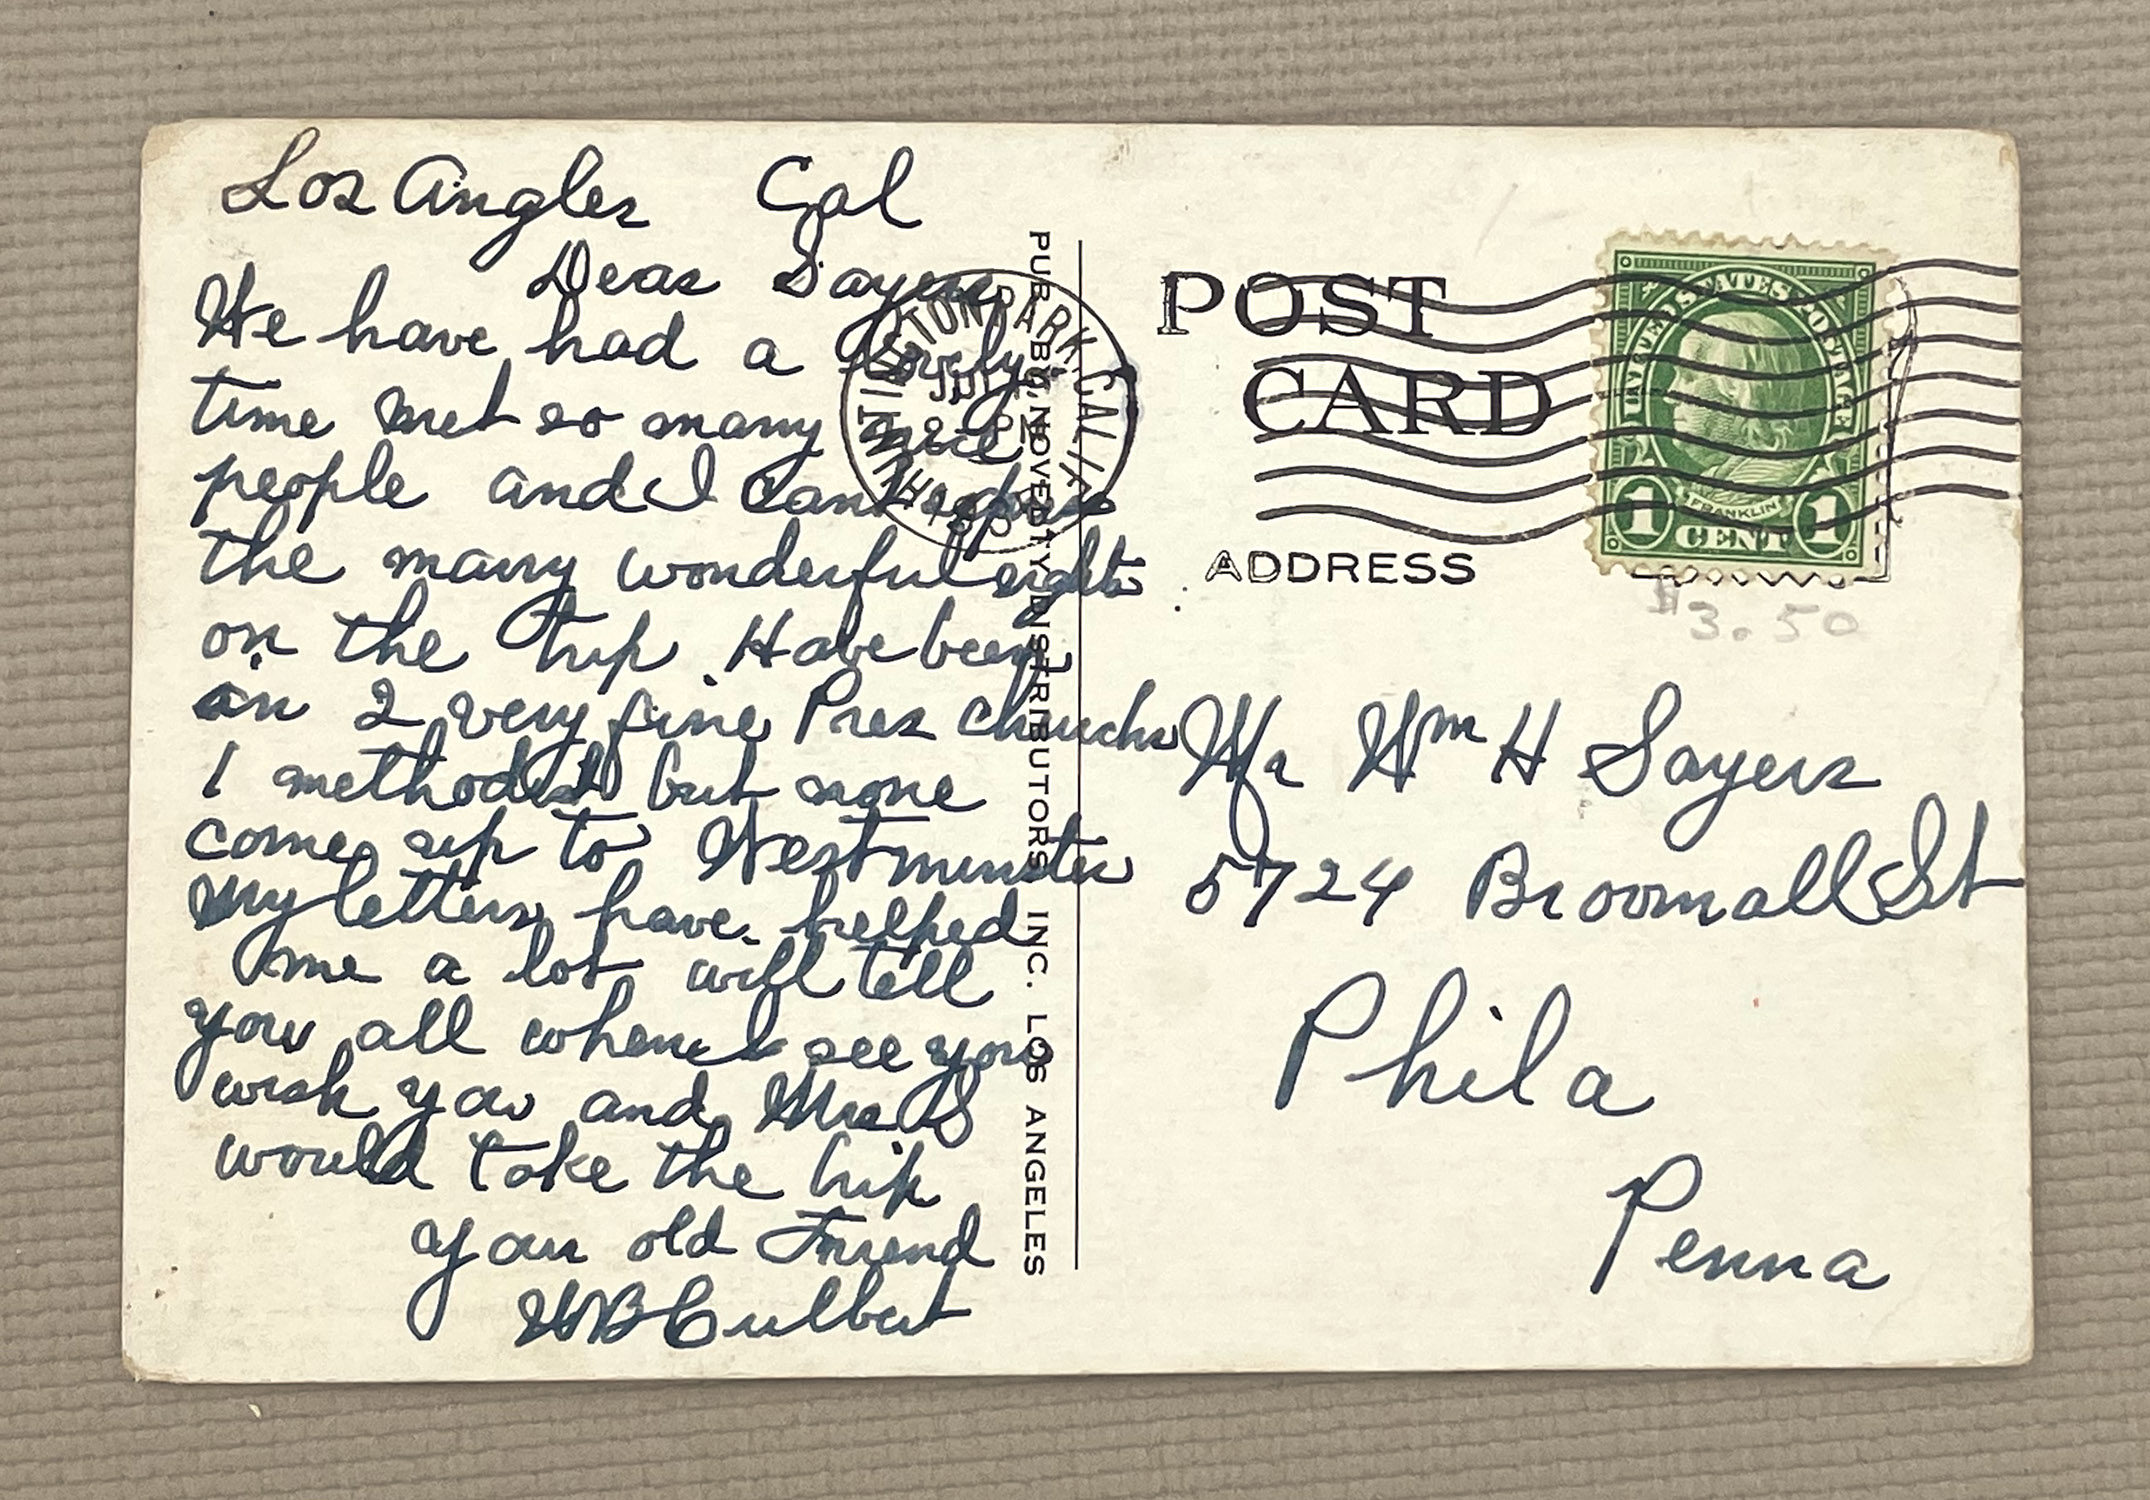 Los Angles Cal
Dear Sayers
We have had a lovely
time met so many nice
people and I
the many wonderful sights
on the trip Have been
in 2 very fine Pres churchs
1 methodist but none
come up to Westminster
My letters have helped
me a lot will tell
you all when I see you
wish you and Mrs S
would take the trip
your old Friend
WB Culbert
PUB. BY NOVELTY DISTRIBUTORS INC. LOS ANGELES
HUNTINGTON PARK CALIF.
PM
POST
CARD
ADDRESS
UNITED STATES POSTAGE
FRANKLIN
1 CENT 1
$3.50
Mr Wm H Sayers
5724 Broomall St
Phila
Penna